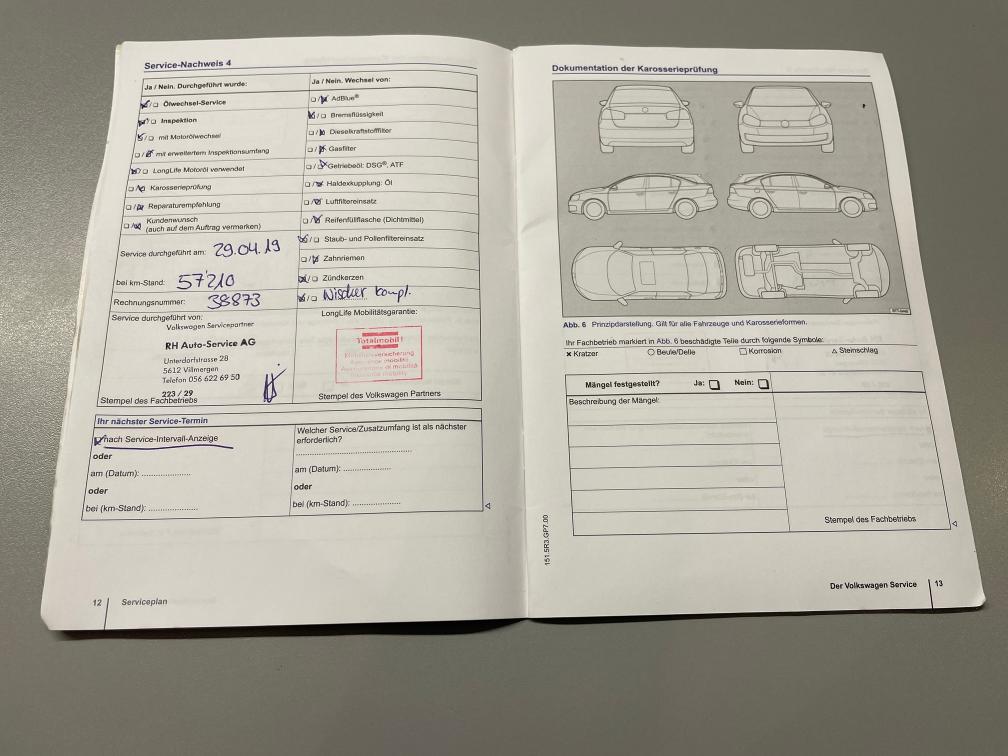 Service-Nachweis 4
Ja / Nein. Durchgeführt wurde:
☑/☐ Ölwechsel-Service
☑/☐ Inspektion
☑/☐ mit Motorölwechsel
☐/☑ mit erweitertem Inspektionsumfang
☑/☐ LongLife Motoröl verwendet
☐/☑ Karosserieprüfung
☐/☑ Reparaturempfehlung
☐/☑ Kundenwunsch
(auch auf dem Auftrag vermerken)
Service durchgeführt am: 29.04.19
bei km-Stand: 57'210
Rechnungsnummer: 38873
Service durchgeführt von:
Volkswagen Servicepartner
RH Auto-Service AG
Unterdorfstrasse 28
5612 Villmergen
Telefon 056 622 69 50
223 / 29
Stempel des Fachbetriebs
Ja / Nein. Wechsel von:
☐/☑ AdBlue®
☑/☐ Bremsflüssigkeit
☐/☑ Dieselkraftstofffilter
☐/☑ Gasfilter
☐/☑ Getriebeöl: DSG®, ATF
☐/☑ Haldexkupplung: Öl
☐/☑ Luftfiltereinsatz
☐/☑ Reifenfüllflasche (Dichtmittel)
☑/☐ Staub- und Pollenfiltereinsatz
☐/☑ Zahnriemen
☑/☐ Zündkerzen
☑/☐ Wischer kompl.
LongLife Mobilitätsgarantie:
Totalmobil!
Stempel des Volkswagen Partners
Ihr nächster Service-Termin
☑ nach Service-Intervall-Anzeige
oder
am (Datum): ....................
oder
bei (km-Stand): ....................
Welcher Service/Zusatzumfang ist als nächster
erforderlich?
am (Datum): ....................
oder
bei (km-Stand): ....................
12 Serviceplan
Dokumentation der Karosserieprüfung
Abb. 6 Prinzipdarstellung. Gilt für alle Fahrzeuge und Karosserieformen.
Ihr Fachbetrieb markiert in Abb. 6 beschädigte Teile durch folgende Symbole:
✗ Kratzer ○ Beule/Delle □ Korrosion △ Steinschlag
Mängel festgestellt? Ja: ☐ Nein: ☐
Beschreibung der Mängel:
Stempel des Fachbetriebs
151.5R3.GP7.00
Der Volkswagen Service 13